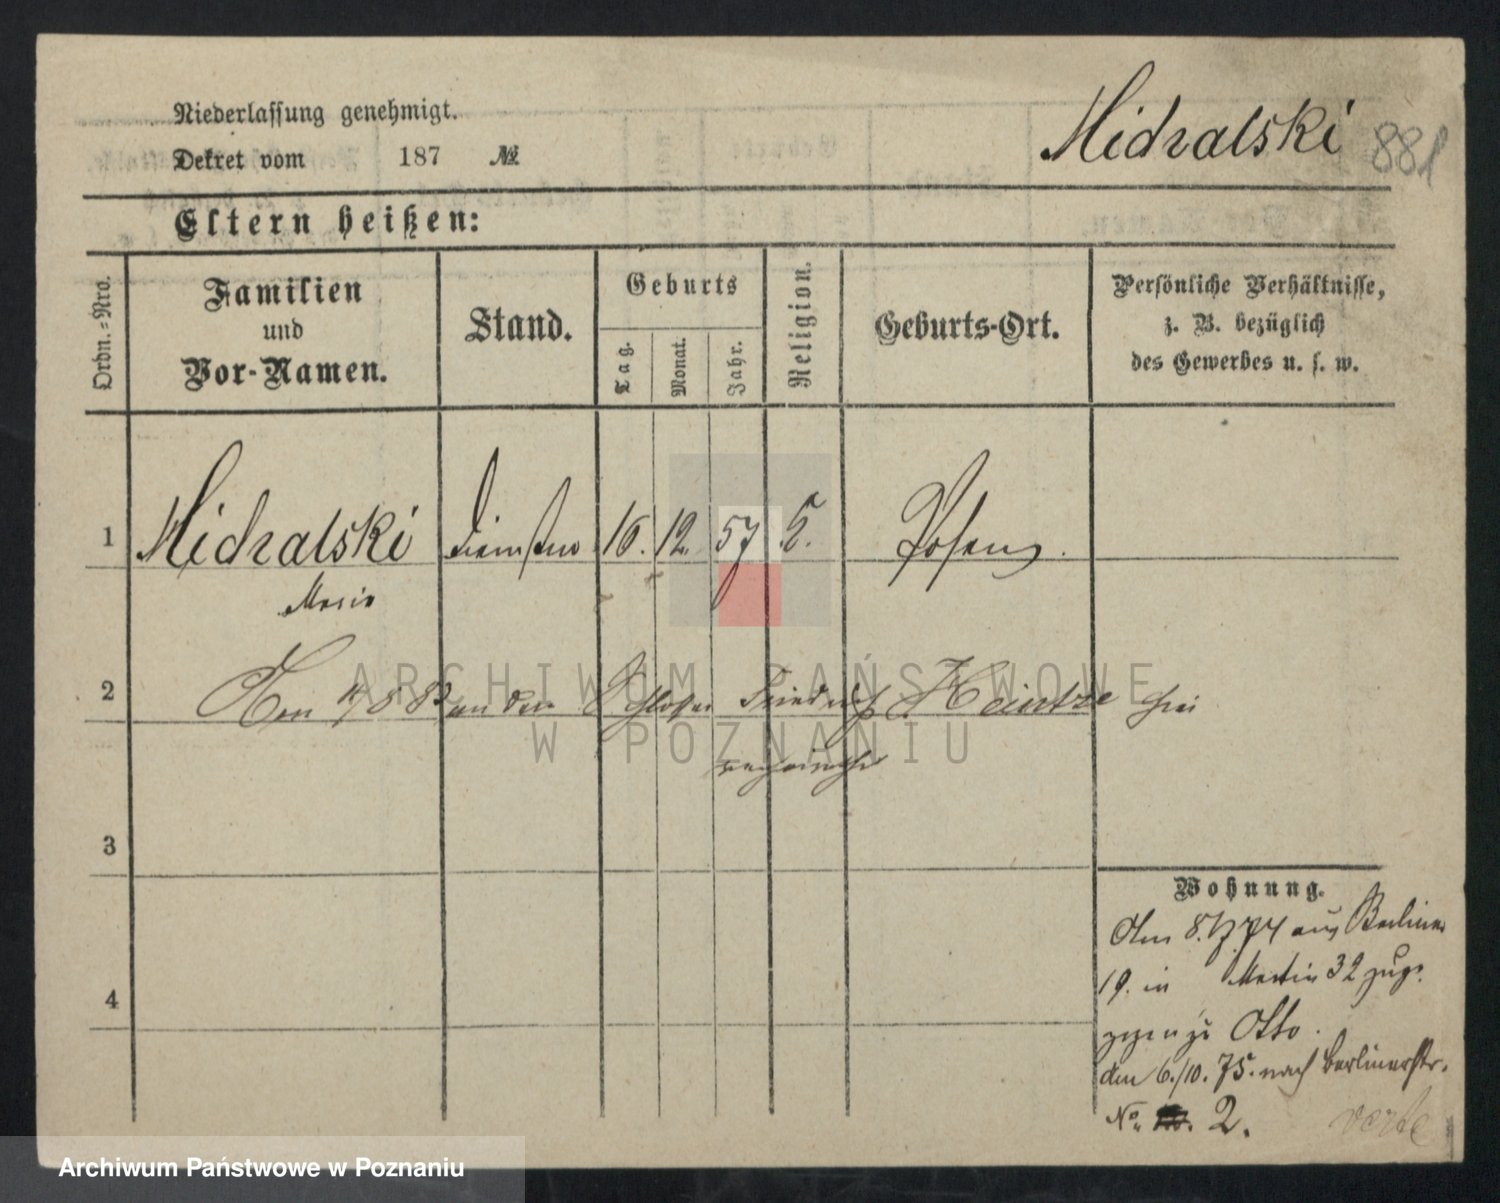 Niederlassung genehmigt.
Dekret vom 187 №
Midralski 881
Eltern heißen:
Ordn.=Nro.
Familien
und
Vor-Namen.
Stand.
Geburts
Tag.
Monat.
Jahr.
Religion.
Geburts-Ort.
Persönliche Verhältnisse,
z. B. bezüglich
des Gewerbes u. s. w.
1 Midralski 16. 12. 57 Posen.
Marie
2 an den Schlosser Friedrich Heintze hier
3
Wohnung.
Am 8./ 74 aus Berliner
19. in Martin 32 zugz.
Otto.
4
den 6./10. 75. nach Berlinerstr.
No. 2.
verte
ARCHIWUM PAŃSTWOWE
W POZNANIU
Archiwum Państwowe w Poznaniu